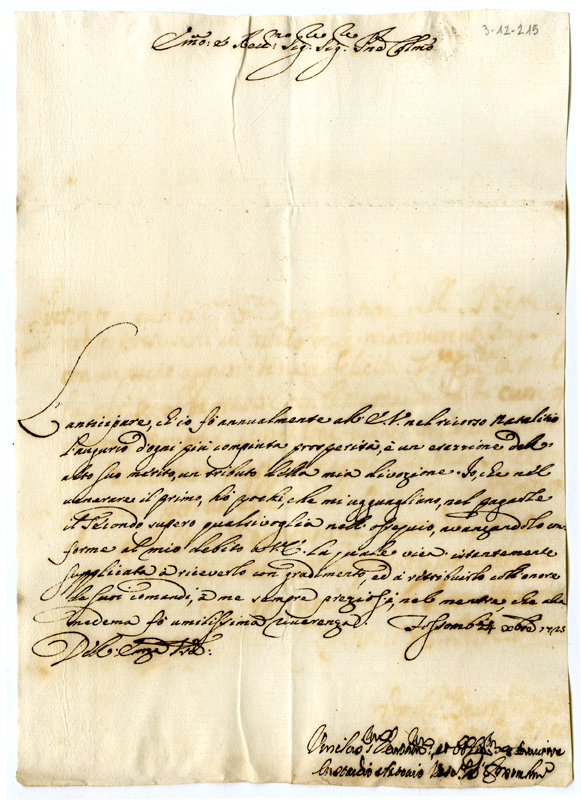 3-12-215
Emõ: e Reu:mo Sig: Sig: Pne Colmo
L'anticipare, ch'io fò annualmente all' E.V. nel ricorso Natalitio
l'augurio d'ogni più compiuta prosperità, è un esazzione dell'
alto suo merito, un tributo della mia divozione. Io, che nel
venerare il primo, hò pochi, che mi uguagliano, nel pagarle
il secondo supero qualsivoglia nell' ossequio, avanzandolo con-
forme al mio debito all' E.V. la quale viene istantemente
supplicata à riceverlo con gradimento, ed à retribuirlo coll' onore
de suoi comandi, à me sempre preziosi, nel mentre, che alla
medema fò umilissima riverenza. Fossomb: 24 Xbre 1723
Dell' Emza Vra: